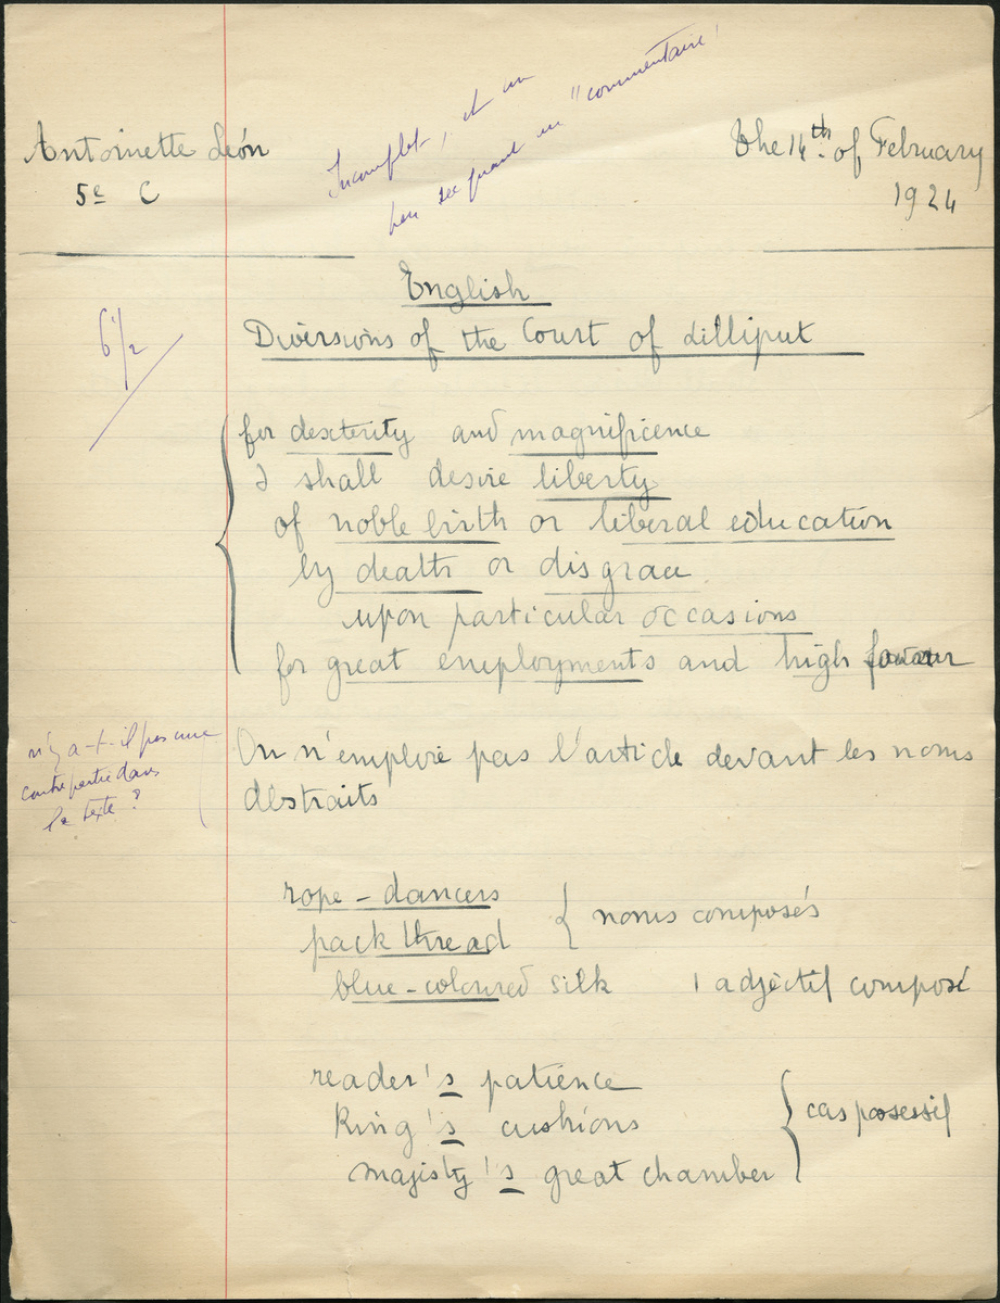 Antoinette León
5e C
Incomplet, et un
peu sec quant au "commentaire"
The 14th of February
1924
English
Diversions of the Court of Lilliput
6 1/2
for dexterity and magnificence
I shall desire liberty
of noble birth or liberal education
by death or disgrace
upon particular occasions
for great employments and high favour
n'y a-t-il pas une
contrepartie dans
le texte ?
On n'emploie pas l'article devant les noms
abstraits
rope-dancers
pack thread
noms composés
blue-coloured silk 1 adjectif composé
reader's patience
King's cushions
majisty's great chamber
cas possessif